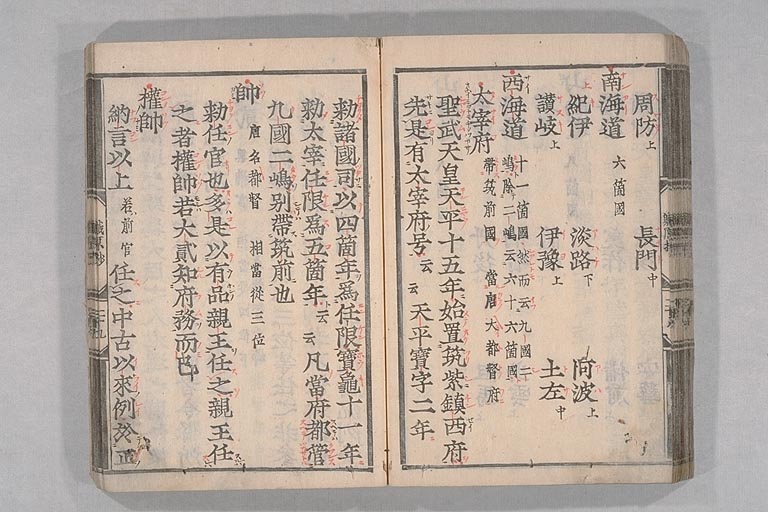 周防上 長門中
南海道 六箇國
紀伊上 淡路下 阿波上
讃岐上 伊豫上 土左中
西海道 十一箇國然而云九國二
嶋除二嶋云六十六箇國
太宰府 帶筑前國 當唐大都督府
聖武天皇天平十五年始置筑紫鎮西府
先是有太宰府号云云 天平寶字二年
勅諸國司以四箇年爲任限寶龜十一年
勅太宰任限爲五箇年云云 凡當府都管
九國二嶋別帶筑前也
帥 唐名都督 相當從三位
勅任官也多是以有品親王任之親王任
之者權帥若大貳知府務而已
權帥
納言以上若前官任之中古以來例於正